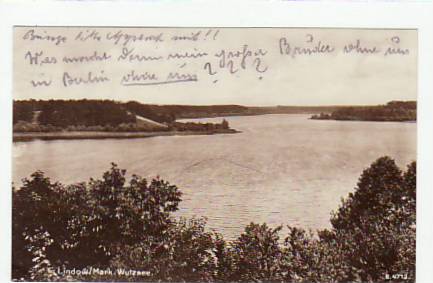 Bringe bitte mit!!
Was macht denn mein großer Brüder ohne uns
in Berlin ohne uns ???
Lindow/Mark. Wutzsee